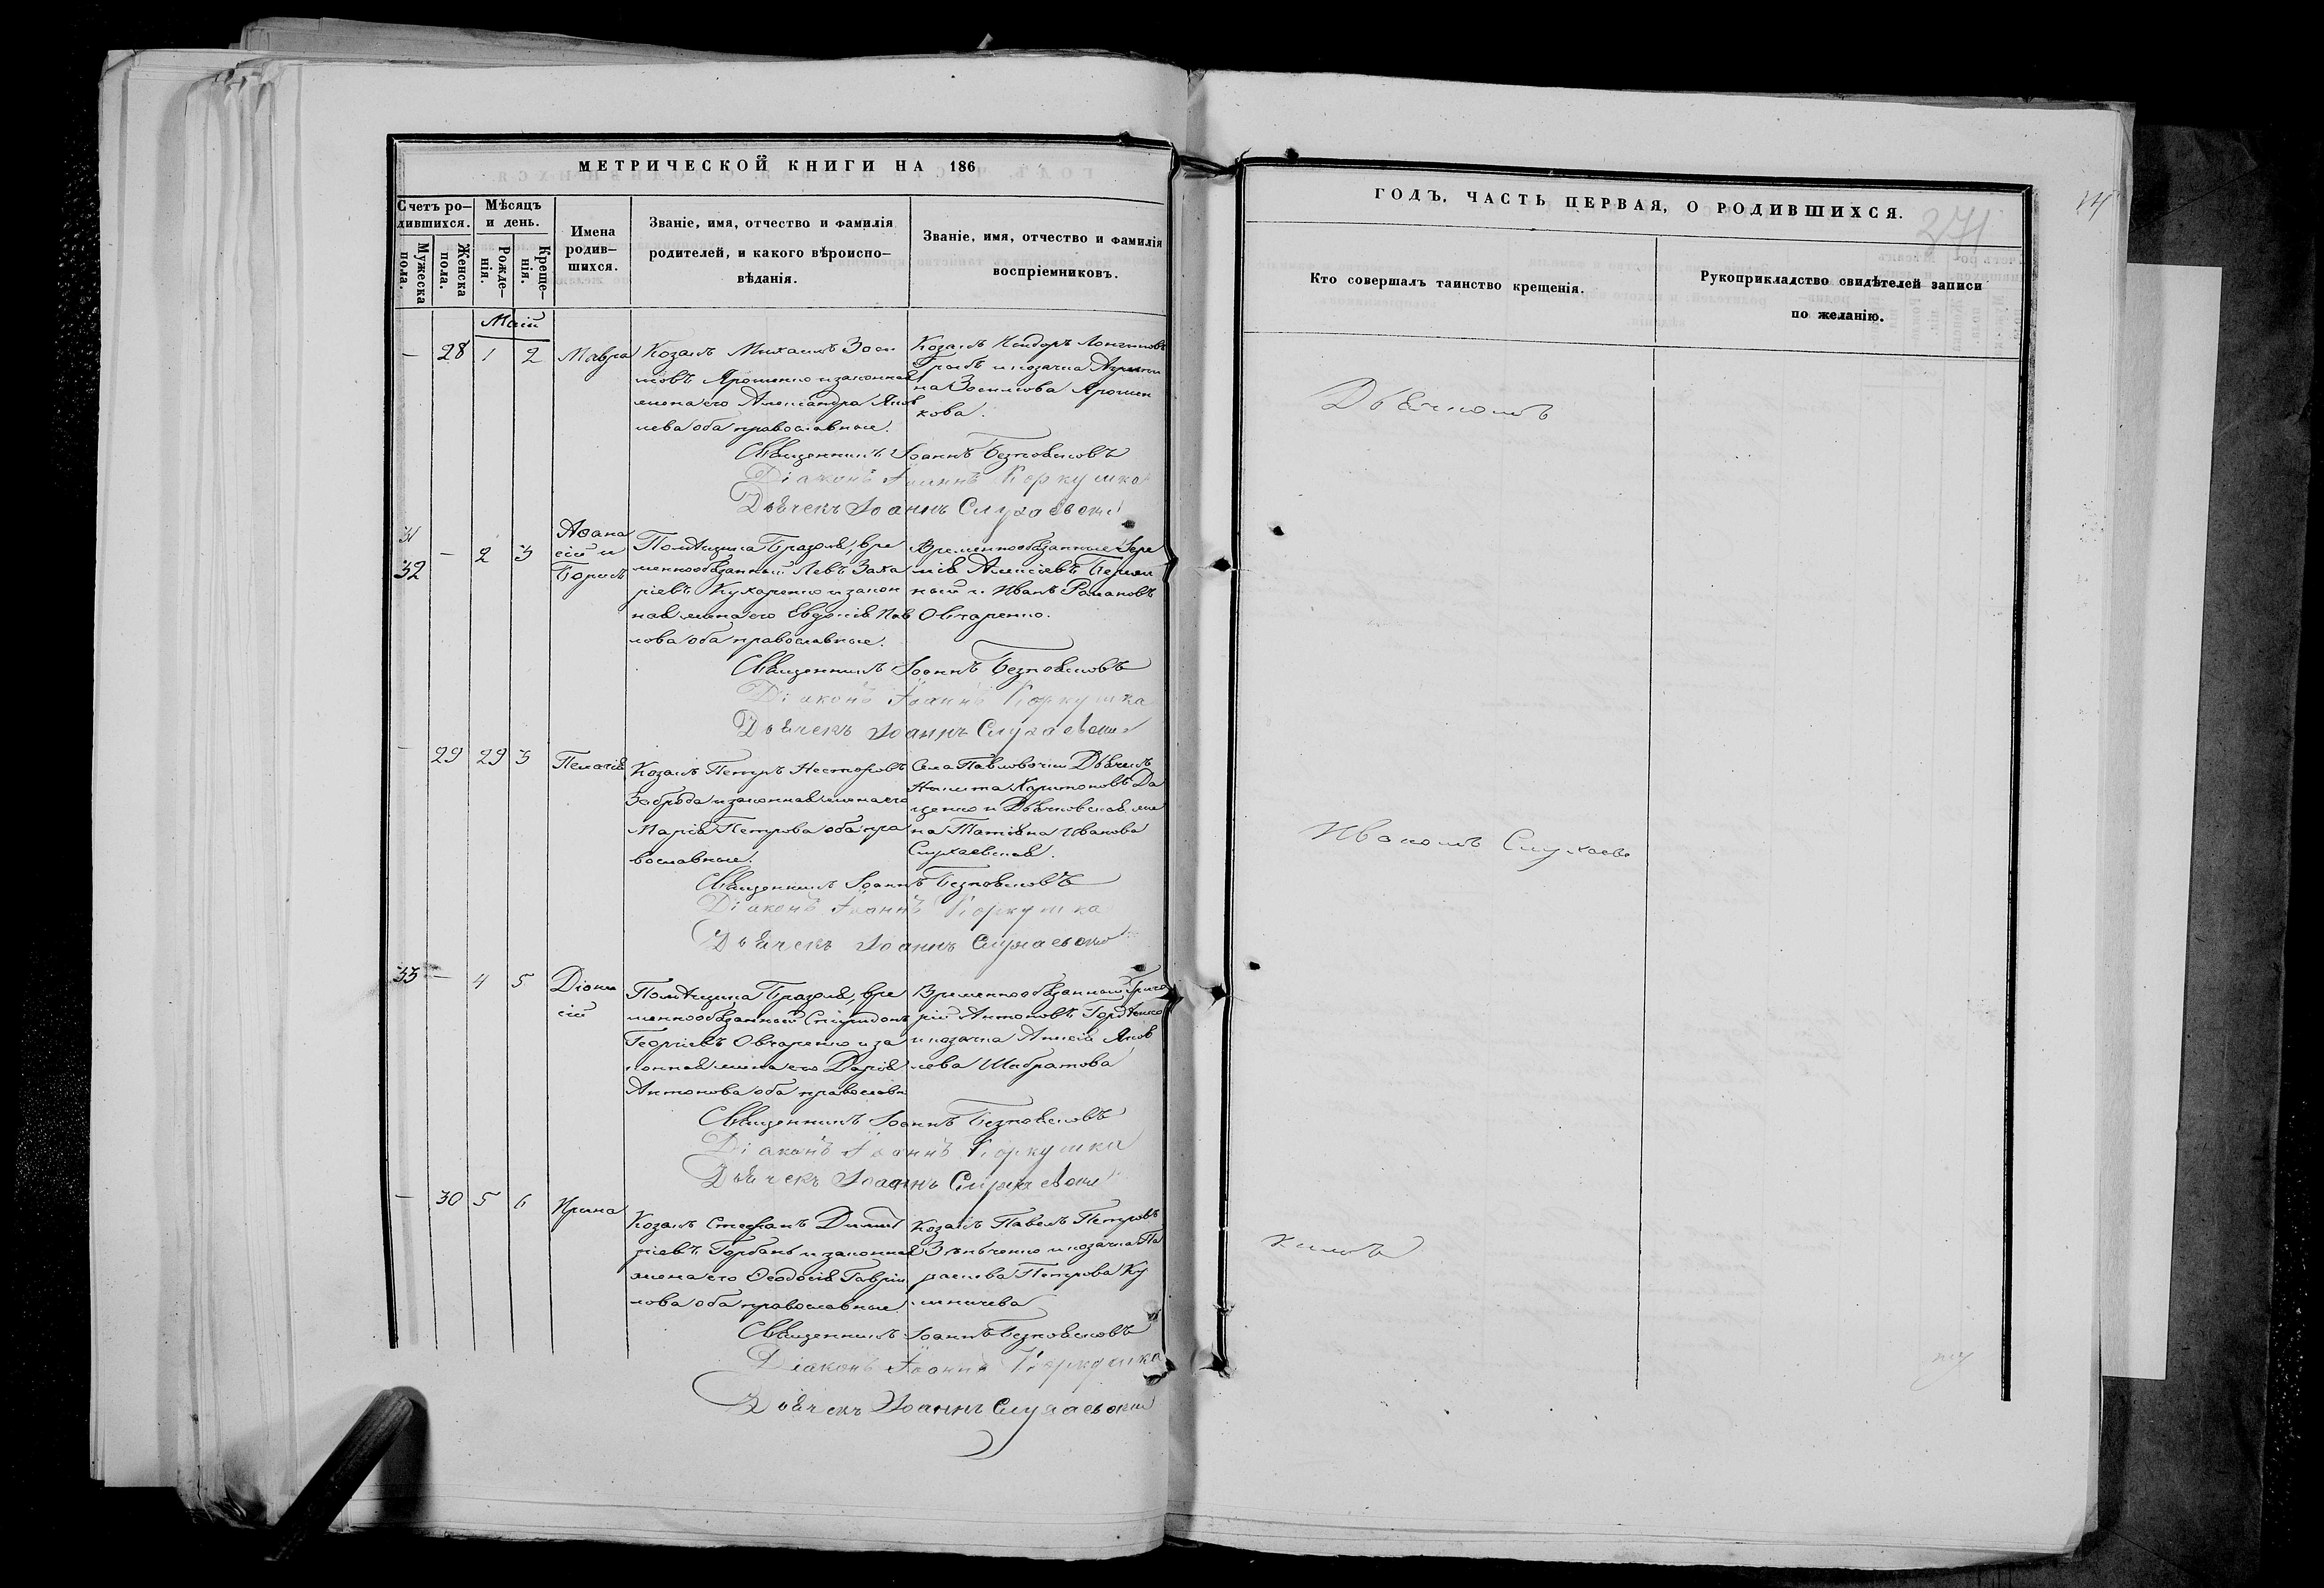 МЕТРИЧЕСКОЙ КНИГИ НА 186
Счетъ ро-
дившихся.
Мужеска
пола.
Женска
пола.
Мѣсяцъ
и день.
Рожде-
нія.
Креще-
нія.
Имена
родив-
шихся.
Званіе, имя, отчество и фамилія
родителей, и какого вѣроиспо-
вѣданія.
Званіе, имя, отчество и фамилія
воспріемниковъ.
Маій
— 28 1 2 Мавра
Козакъ Михаилъ Зоси
мовъ Ярошенко и законная
жена его Александра Яков
лева оба православные.
Козакъ
и козачка
на Зосимова Ярошен
кова.
Священникъ Іоаннъ
Діаконъ Іоаннъ Коркушка
Дьячекъ Іоаннъ Слухаевски
31
32 — 2 3
Аѳана
сій и
Борисъ
Помѣщика вре
меннообязанный Левъ Заха
ріевъ Кухаренко и закон
ная жена его Евдокія Пав
лова оба православные.
Временнообязанные Іере
мія Алексіевъ
ный и Иванъ Романовъ
Овчаренко.
Священникъ Іоаннъ
Діаконъ Іоаннъ Коркушка
Дьячекъ Іоаннъ Слухаевски
— 29 29 3 Пелагія
Козакъ Петръ Несторовъ
Заброда и законная жена его
Марія Петрова оба пра
вославные.
Села Павловочки Дьячекъ
Никита Харитоновъ Да
ценко и Дьячковская же
на Татіяна Иванова
Слухаевская.
Священникъ Іоаннъ
Діаконъ Іоаннъ Коркушка
Дьячекъ Іоаннъ Слухаевски
33 — 4 5
Діони
сій
Помѣщика вре
меннообязанный Спиридонъ
Георгіевъ Овчаренко и за
конная жена его Дарія
Антонова оба православн
Временнообязанный Григо
рій Антоновъ Гордѣенко
и козачка Яков
лева Шабратова
Священникъ Іоаннъ
Діаконъ Іоаннъ Коркушка
Дьячекъ Іоаннъ Слухаевски
— 30 5 6 Ирина
Козакъ Стефанъ Димит
ріевъ Горбань и законная
жена его Ѳеодосія Гаврии
лова оба православные.
Козакъ Павелъ Петровъ
и козачка Па
раскева Петрова Ку
Священникъ Іоаннъ
Діаконъ Іоаннъ Коркушка
Дьячекъ Іоаннъ Слухаевски
ГОДЪ. ЧАСТЬ ПЕРВАЯ, О РОДИВШИХСЯ.
271
Кто совершалъ таинство крещенія.
Рукоприкладство свидѣтелей записи
по желанію.
Дьячкомъ
Иваномъ Слухаевс
кимъ